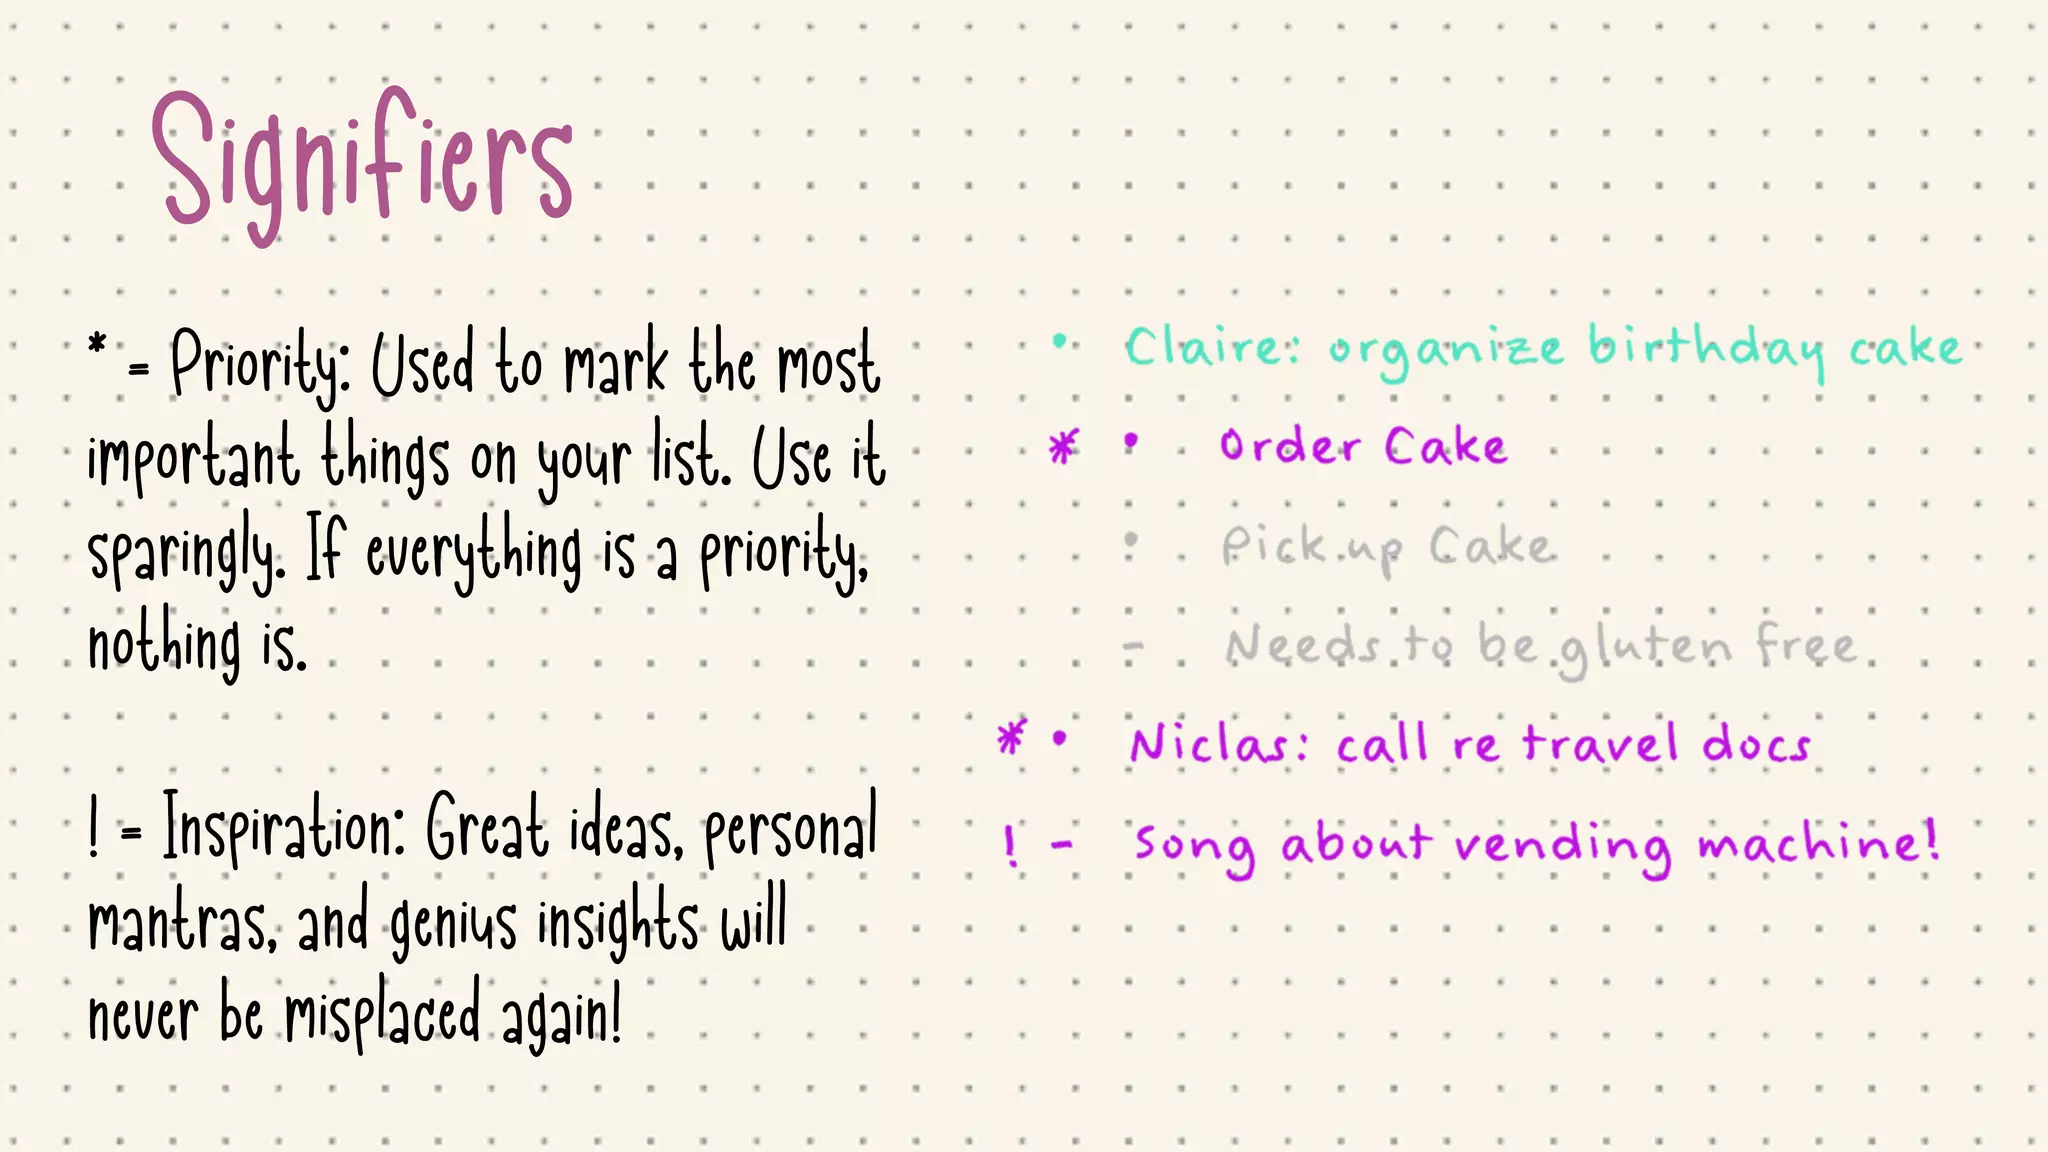 Signifiers
* = Priority: Used to mark the most
important things on your list. Use it
sparingly. If everything is a priority,
nothing is.
! = Inspiration: Great ideas, personal
mantras, and genius insights will
never be misplaced again!
• Claire: organize birthday cake
* • Order Cake
• Pick up Cake
- Needs to be gluten free
* • Niclas: call re travel docs
! - Song about vending machine!